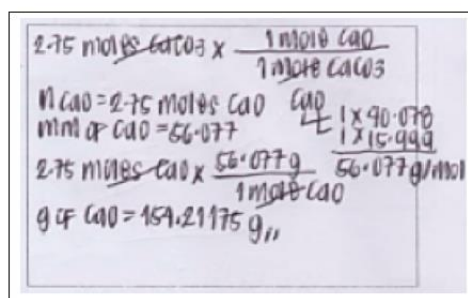 2.75 moles CaCO3 x 1 mole CaO
1 mole CaCO3
n CaO = 2.75 moles CaO
CaO
1 x 40.078
mm of CaO = 56.077
1 x 15.999
56.077 g/mol
2.75 moles CaO x 56.077 g
1 mole CaO
g of CaO = 154.21175 g,,